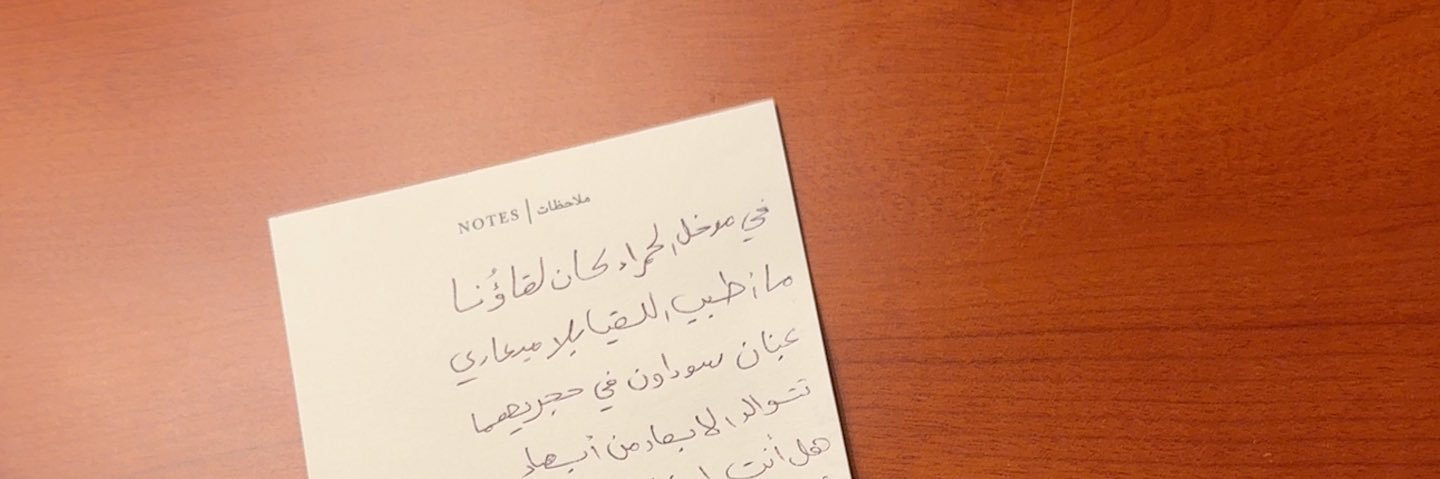 NOTES | ملاحظات
في مدخل الحمراء كان لقاؤُنا
ما أطيب اللقيا بلا ميعادي
عينان سوداون في حجريهما
تتوالد الابعاد من أبعاد
هل أنت